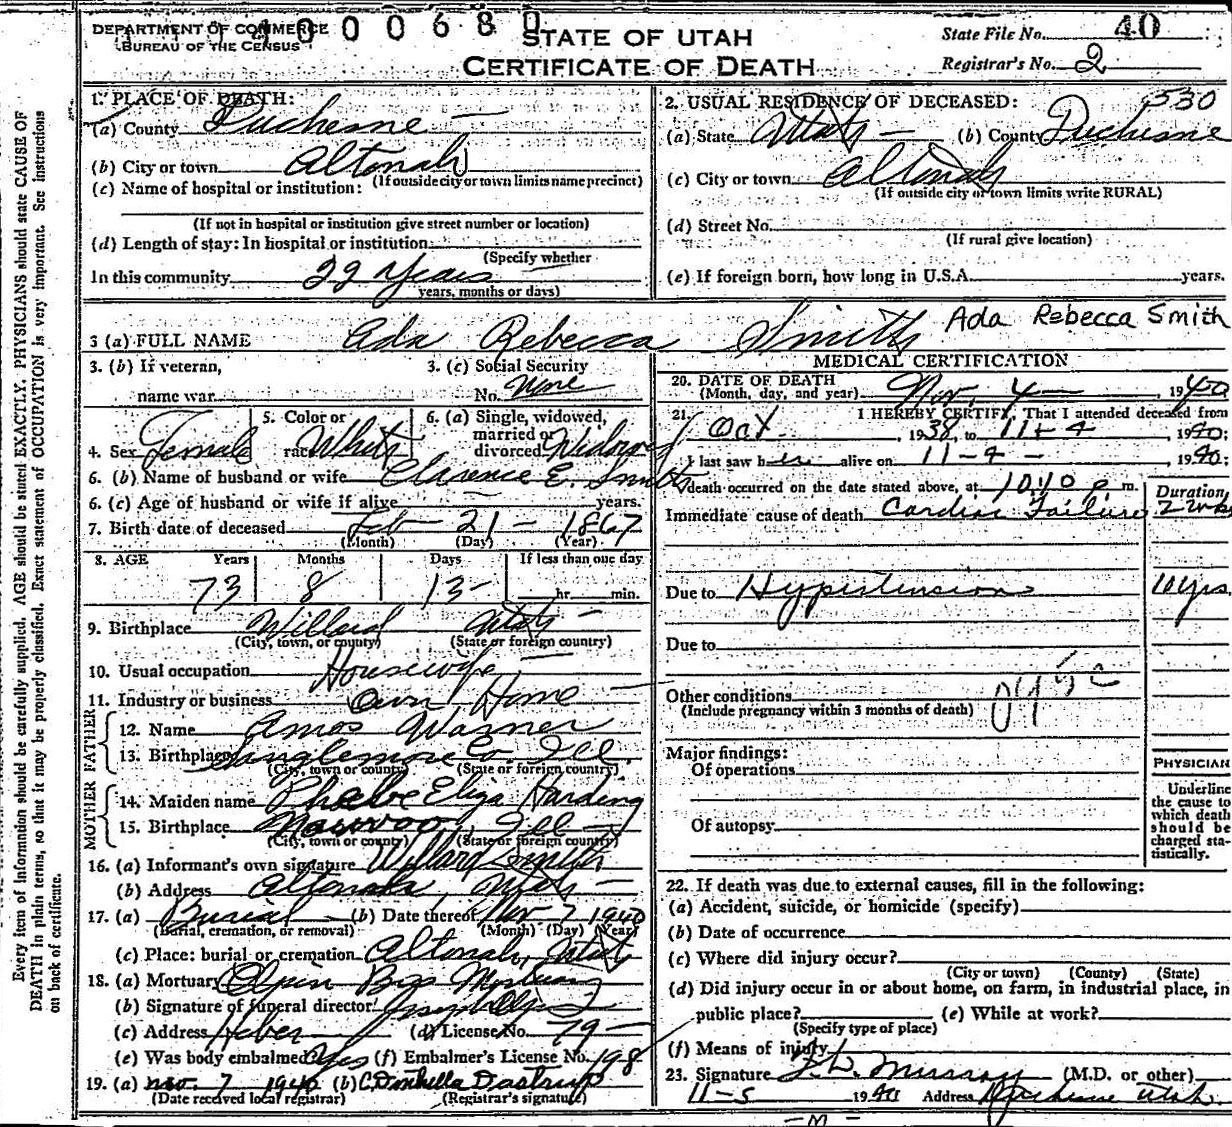 DEPARTMENT OF COMMERCE
BUREAU OF THE CENSUS
4000680
STATE OF UTAH
CERTIFICATE OF DEATH
State File No. 40
Registrar's No. 2
Every item of information should be carefully supplied. AGE should be stated EXACTLY. PHYSICIANS should state CAUSE OF
DEATH in plain terms, so that it may be properly classified. Exact statement of OCCUPATION is very important. See instructions
on back of certificate.
1. PLACE OF DEATH:
(a) County Duchesne
(b) City or town Altonah
(If outside city or town limits name precinct)
(c) Name of hospital or institution:
(If not in hospital or institution give street number or location)
(d) Length of stay: In hospital or institution
(Specify whether
In this community 22 Years
years, months or days)
2. USUAL RESIDENCE OF DECEASED: 530
(a) State Utah (b) County Duchesne
(c) City or town Altonah
(If outside city or town limits write RURAL)
(d) Street No.
(If rural give location)
(e) If foreign born, how long in U.S.A. years.
3 (a) FULL NAME Ada Rebecca Smith Ada Rebecca Smith
3. (b) If veteran,
name war
3. (c) Social Security
No. None
4. Sex Female
5. Color or
race White
6. (a) Single, widowed,
married or
divorced Widowed
6. (b) Name of husband or wife Clarence E. Smith
6. (c) Age of husband or wife if alive years.
7. Birth date of deceased Feb 21 - 1867
(Month) (Day) (Year)
8. AGE Years Months Days If less than one day
73 8 13 hr. min.
9. Birthplace Willard Utah
(City, town, or county) (State or foreign country)
10. Usual occupation Housewife
11. Industry or business Own Home
FATHER
12. Name Amos Warner
13. Birthplace Ill.
(City, town or county) (State or foreign country)
MOTHER
14. Maiden name Phoebe Eliza Harding
15. Birthplace Nauvoo, Ill
(City, town or county) (State or foreign country)
16. (a) Informant's own signature Willard Smith
(b) Address Altonah, Utah
17. (a) Burial (b) Date thereof Nov 7 1940
(Burial, cremation, or removal) (Month) (Day) (Year)
(c) Place: burial or cremation Altonah, Utah
18. (a) Mortuary Olpin Bros Mortuary
(b) Signature of funeral director Joseph Olpin
(c) Address Heber (d) License No. 79
(e) Was body embalmed? Yes (f) Embalmer's License No. 198
19. (a) Nov. 7 1940 (b)
(Date received local registrar) (Registrar's signature)
MEDICAL CERTIFICATION
20. DATE OF DEATH
(Month, day, and year) Nov. 4 , 1940
21. I HEREBY CERTIFY, That I attended deceased from
Oct , 1938, to 11-4 1940;
I last saw her alive on 11-4- , 1940;
death occurred on the date stated above, at 10:10 p m.
Duration
Immediate cause of death Cardiac Failure 2 wks
Due to Hypertension 10 yrs
Due to
Other conditions
(Include pregnancy within 3 months of death)
Major findings:
Of operations
Of autopsy
PHYSICIAN
Underline
the cause to
which death
should be
charged sta-
tistically.
22. If death was due to external causes, fill in the following:
(a) Accident, suicide, or homicide (specify)
(b) Date of occurrence
(c) Where did injury occur?
(City or town) (County) (State)
(d) Did injury occur in or about home, on farm, in industrial place, in
public place? (e) While at work?
(Specify type of place)
(f) Means of injury
23. Signature Murray (M.D. or other)
11-5 1940 Address Duchesne Utah.
- M -